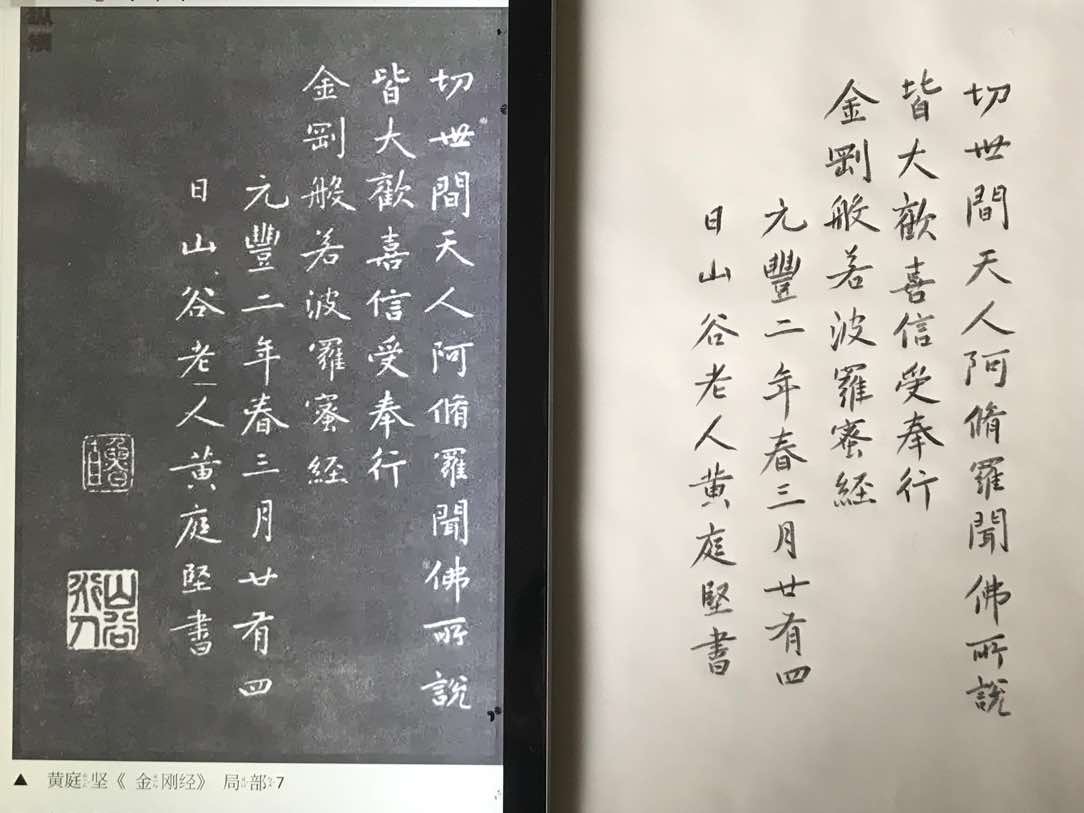 纵横
切世間天人阿脩羅聞佛所說
皆大歡喜信受奉行
金剛般若波羅蜜経
元豐二年春三月廿有四
日山谷老人黄庭堅書
山谷
▲ 黄庭坚《金刚经》 局部7
切世間天人阿脩羅聞佛所說
皆大歡喜信受奉行
金剛般若波羅蜜経
元豐二年春三月廿有四
日山谷老人黄庭堅書